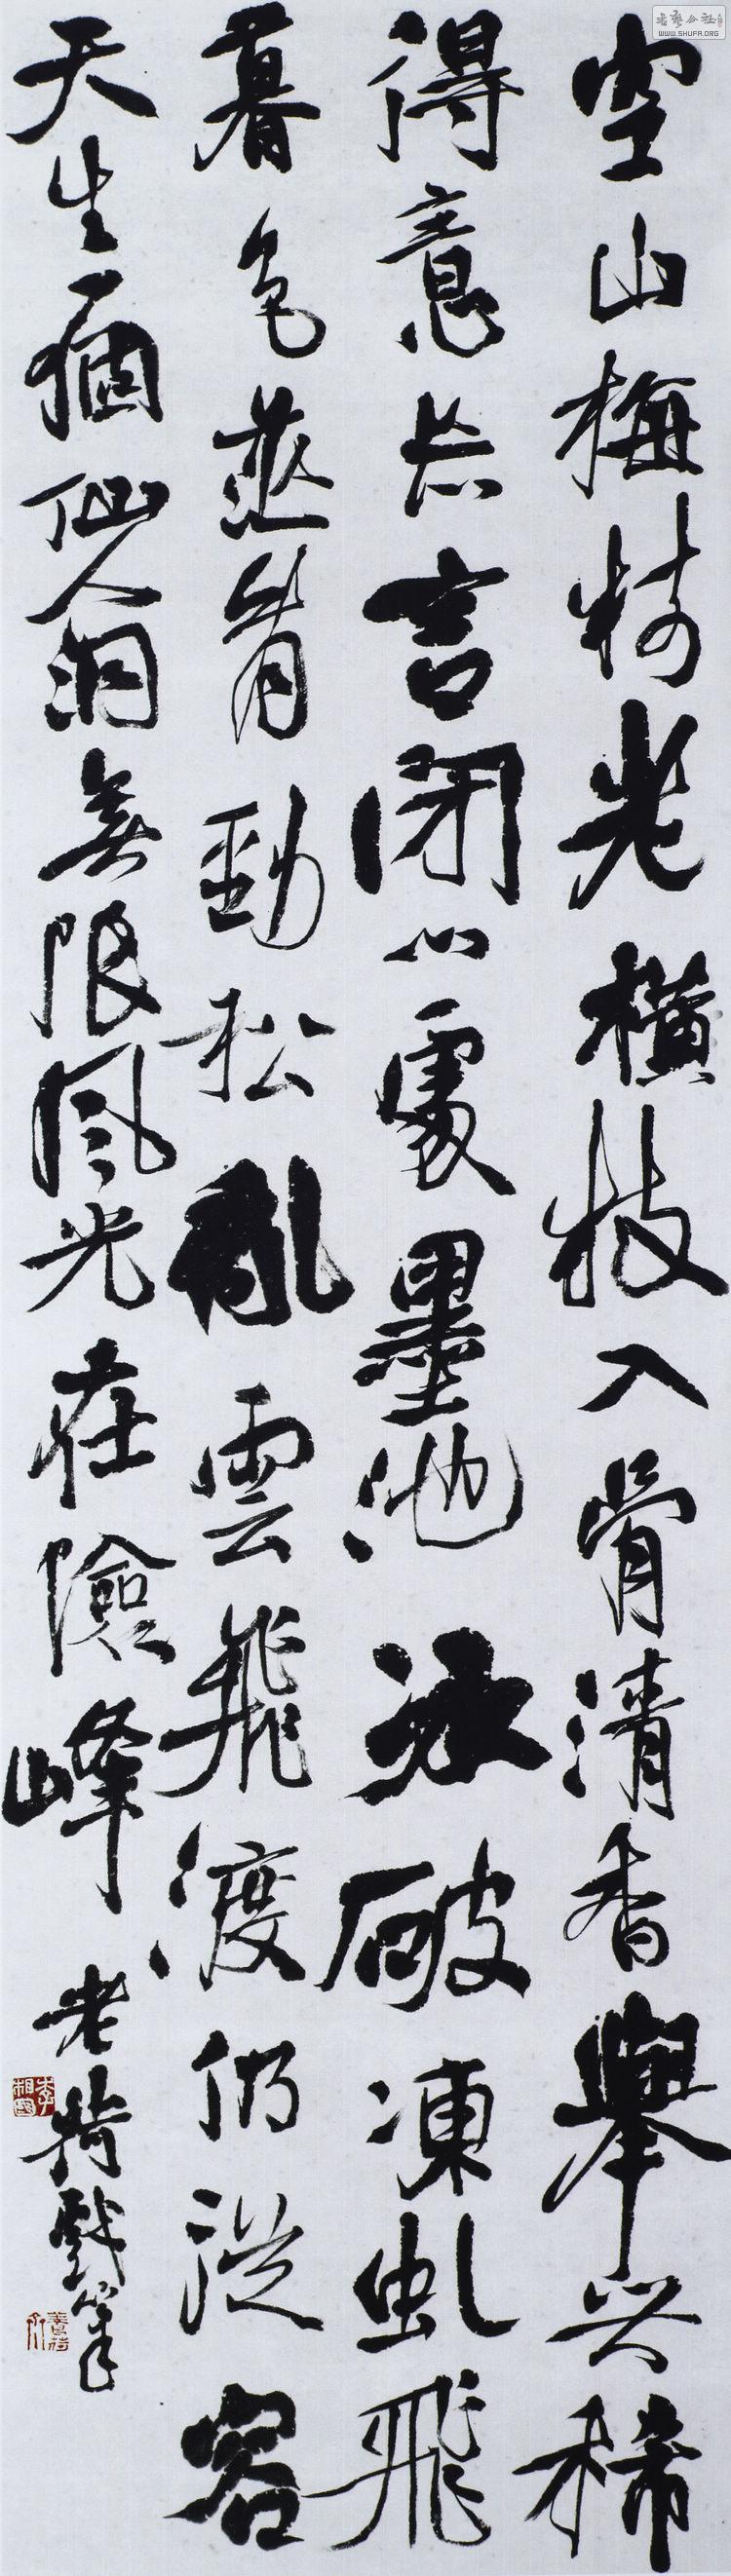 空山梅樹老橫枝入骨清香舉世稀
得意忘言閉門處墨池冰破凍虬飛
暮色茫看勁松亂雲飛渡仍從容
天生一個仙人洞無限風光在險峰
老戲筆
书艺公社
WWW.SHUFA.ORG